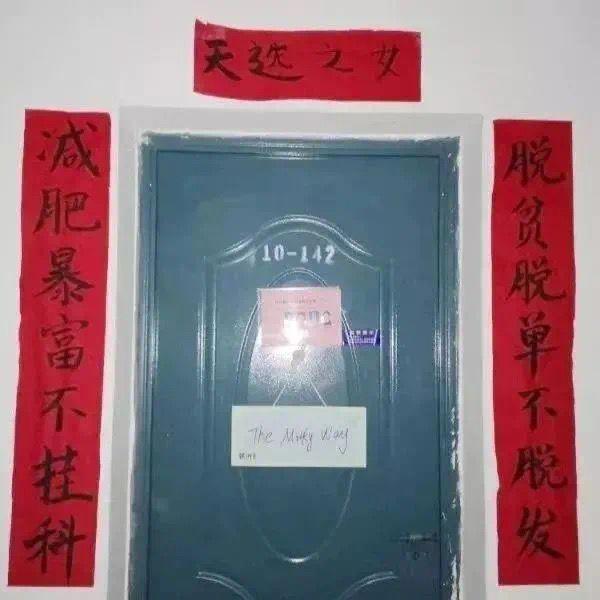 天选之女
脱贫脱单不脱发
减肥暴富不挂科
10-142
The Milky Way